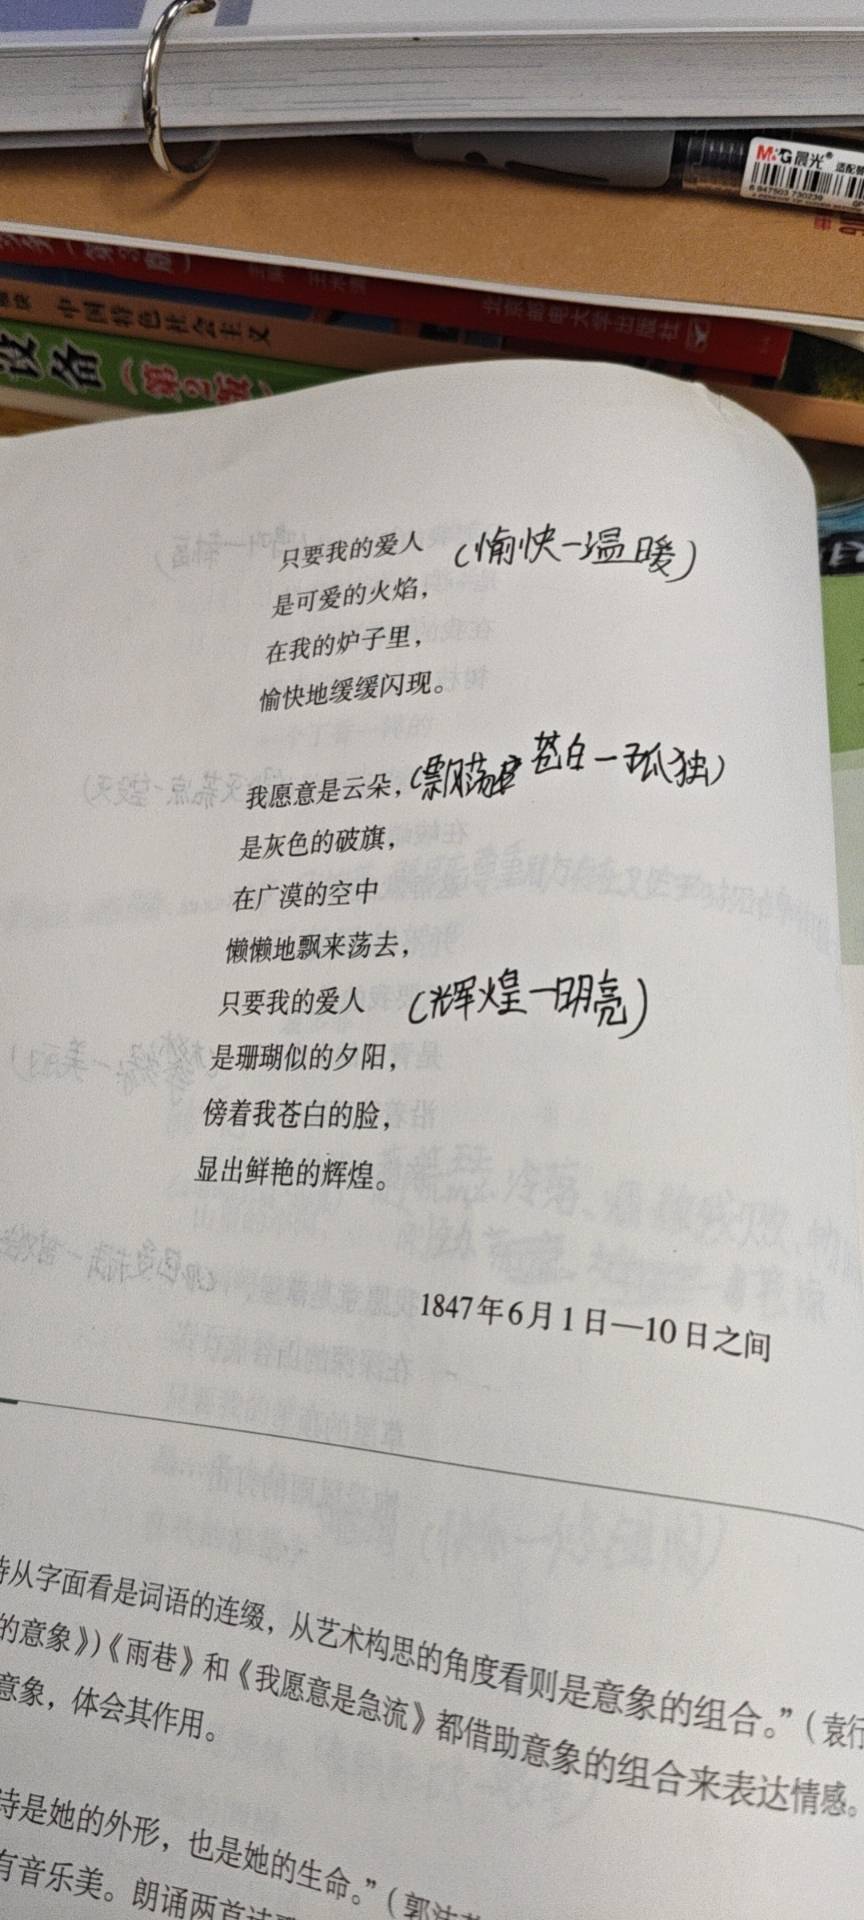 M&G晨光®
6 947503 730239
中国特色社会主义
北京邮电大学出版社
设备（第2版）
只要我的爱人 （愉快一温暖）
是可爱的火焰，
在我的炉子里，
愉快地缓缓闪现。
我愿意是云朵，（飘荡 苍白一孤独）
是灰色的破旗，
在广漠的空中
懒懒地飘来荡去，
只要我的爱人 （辉煌一明亮）
是珊瑚似的夕阳，
傍着我苍白的脸，
显出鲜艳的辉煌。
1847年6月1日—10日之间
诗从字面看是词语的连缀，从艺术构思的角度看则是意象的组合。”（袁行
的意象》）《雨巷》和《我愿意是急流》都借助意象的组合来表达情感。
意象，体会其作用。
诗是她的外形，也是她的生命。”（郭沫
有音乐美。朗诵两首诗